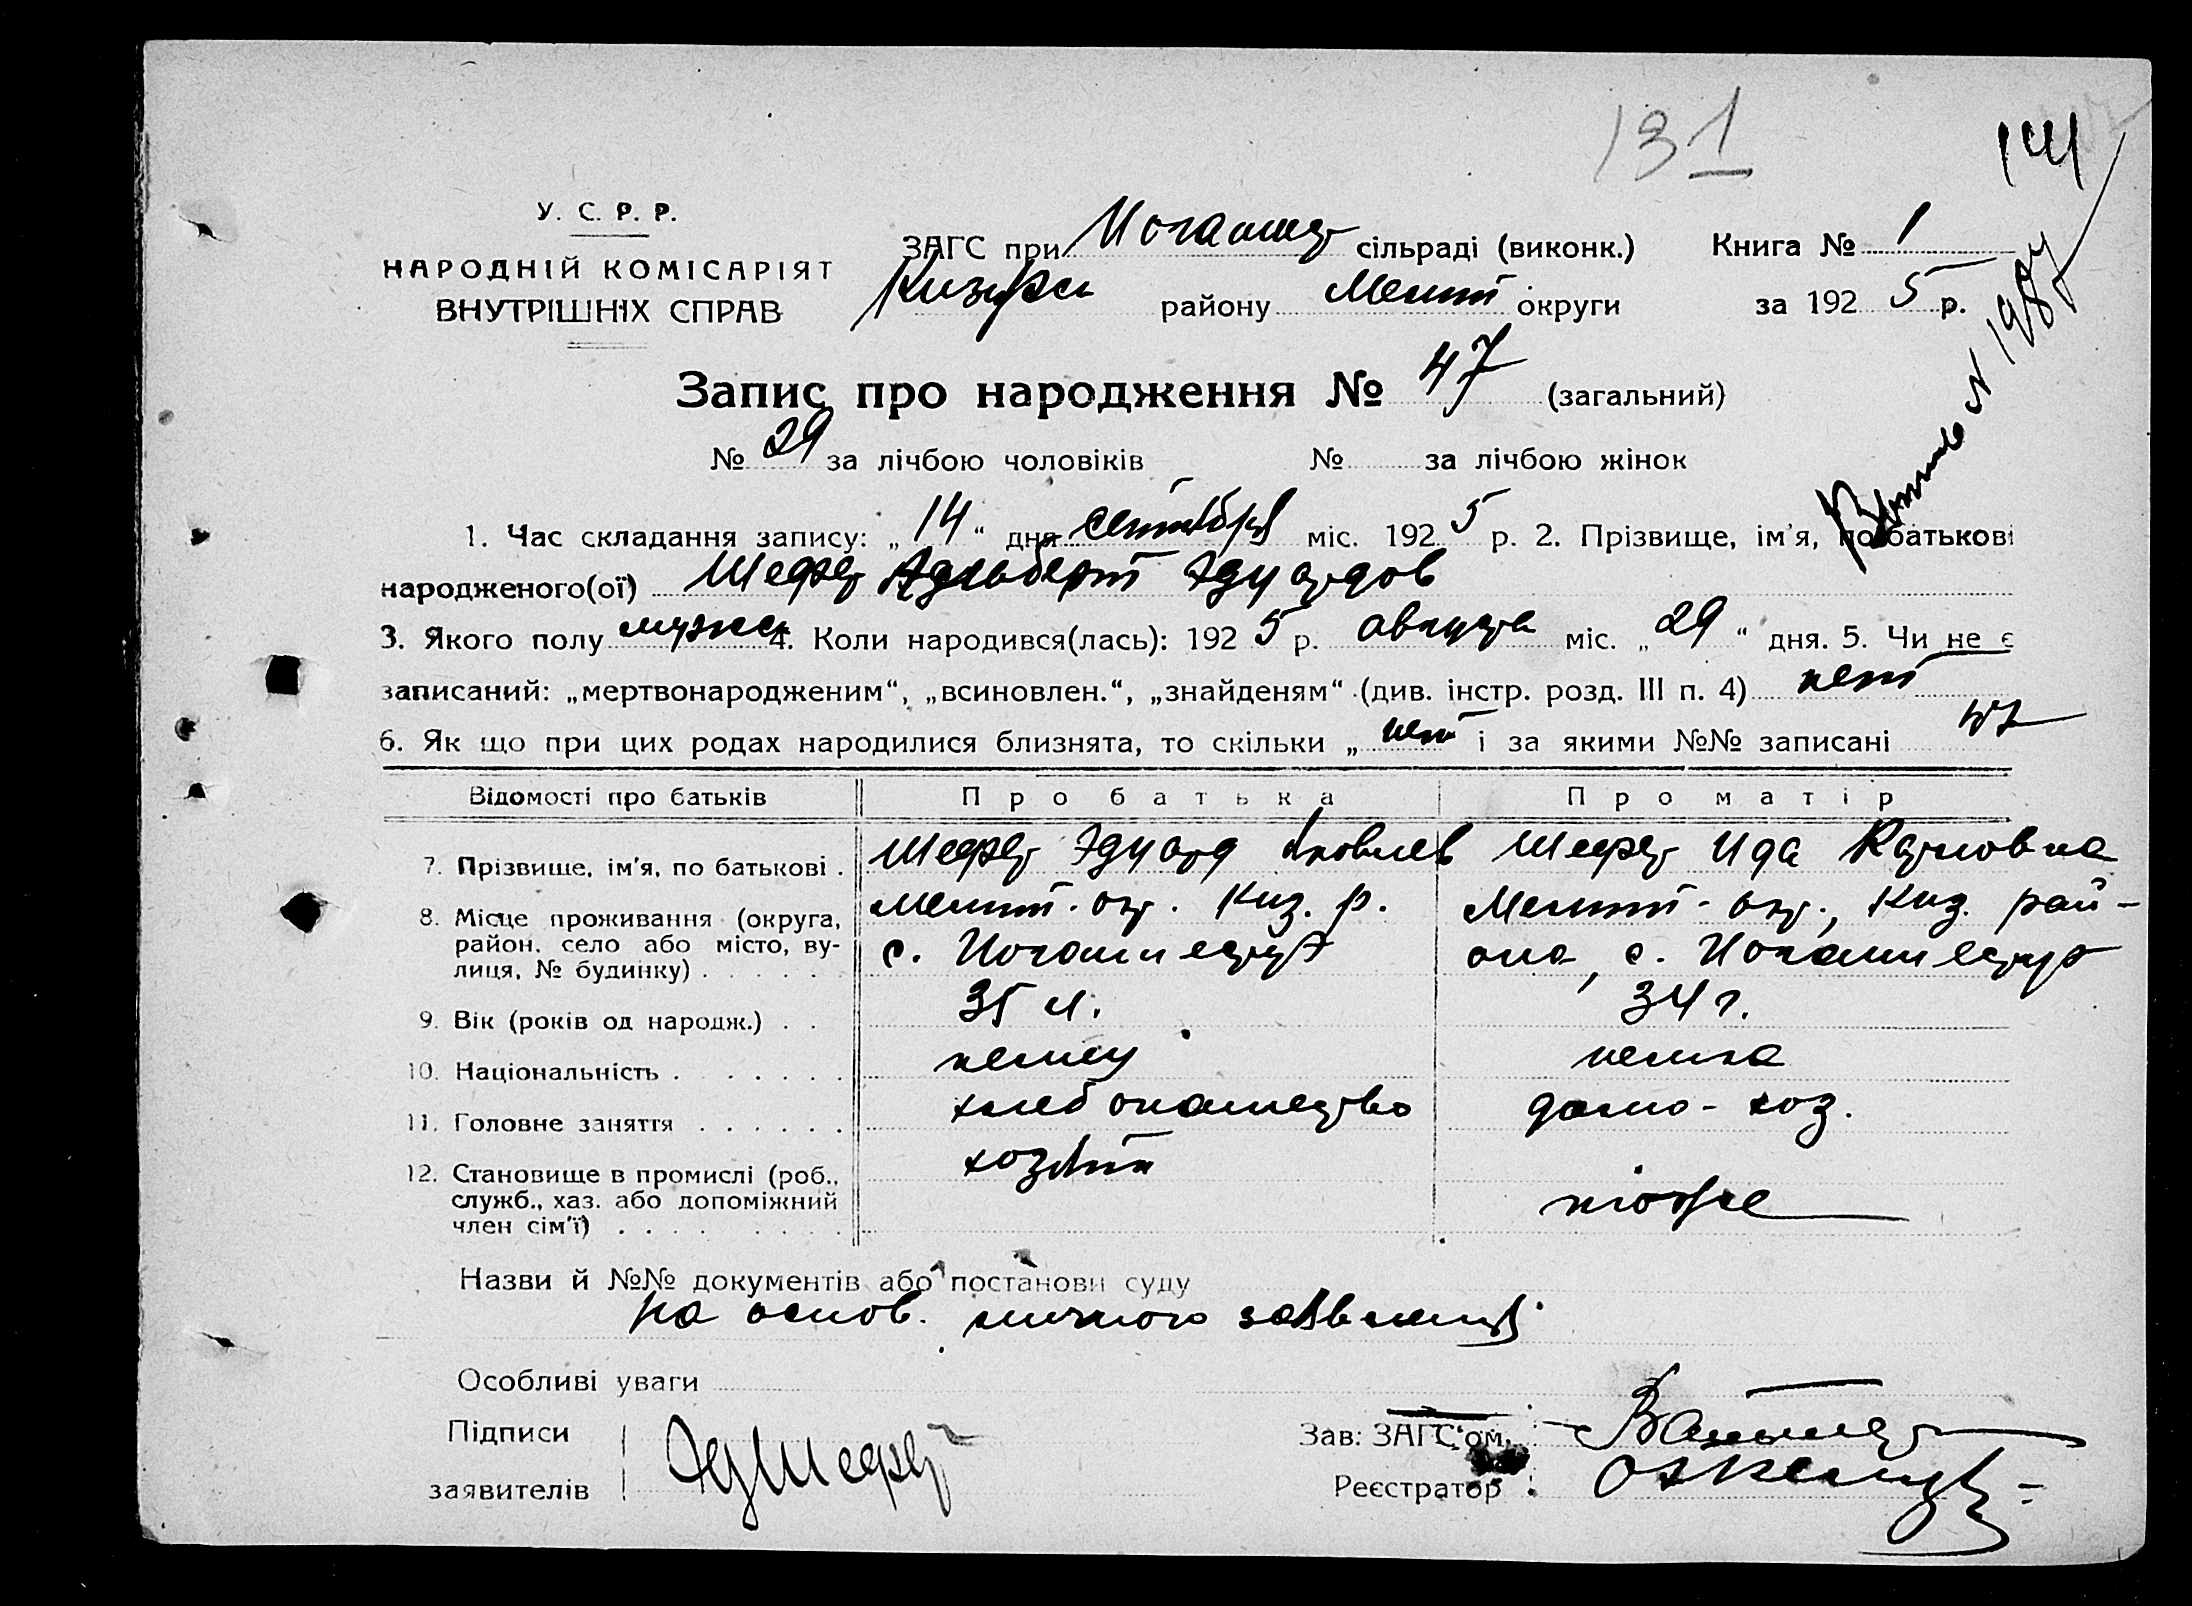 131
141
У. С. Р. Р.
НАРОДНІЙ КОМІСАРІЯТ
ВНУТРІШНІХ СПРАВ
ЗАГС при сільраді (виконк.) Книга № 1
району Мелит округи за 192 5 р.
Запис про народження № 47 (загальний)
№ 29 за лічбою чоловіків № за лічбою жінок
1. Час складання запису: „ 14 “ дня сентября міс. 192 5 р. 2. Прізвище, ім'я, по батькові
народженого(ої) Шефер Адальберт Эдуардов
3. Якого полу мужск 4. Коли народився(лась): 192 5 р. августа міс. „ 29 “ дня. 5. Чи не є
записаний: „мертвонародженим“, „всиновлен.“, „знайденям“ (див. інстр. розд. III п. 4) нет
6. Як що при цих родах народилися близнята, то скільки „ нет і за якими №№ записані
Відомості про батьків Про батька Про матір
7. Прізвище, ім'я, по батькові . Шефер Эдуард Яковлев Шефер Ида Карловна
8. Місце проживання (округа, район, село або місто, вулиця, № будинку) . . . . .
Мелит. окр. Киз. р. Мелит. окр., Киз. рай-
с. Иоганнесру она, с. Иоганнесру
9. Вік (років од народж.) . . 35 л. 34 г.
10. Національність . . . . . . . немец немка
11. Головне заняття . . . . . . хлебопашество домо-хоз.
12. Становище в промислі (роб., служб., хаз. або допоміжний член сім'ї) . . . . . . . хозяин
Назви й №№ документів або постанови суду
На основ. личного заявления
Особливі уваги
Підписи
заявителів
Эд Шефер
Зав: ЗАГС'ом.
Реєстратор